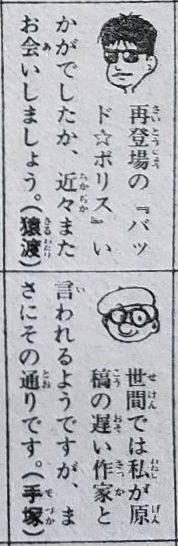 再登場の『バッ
ド☆ポリス』い
かがでしたか、近々また
お会いしましょう。(猿渡)
世間では私が原
稿の遅い作家と
言われるようですが、ま
さにその通りです。(手塚)